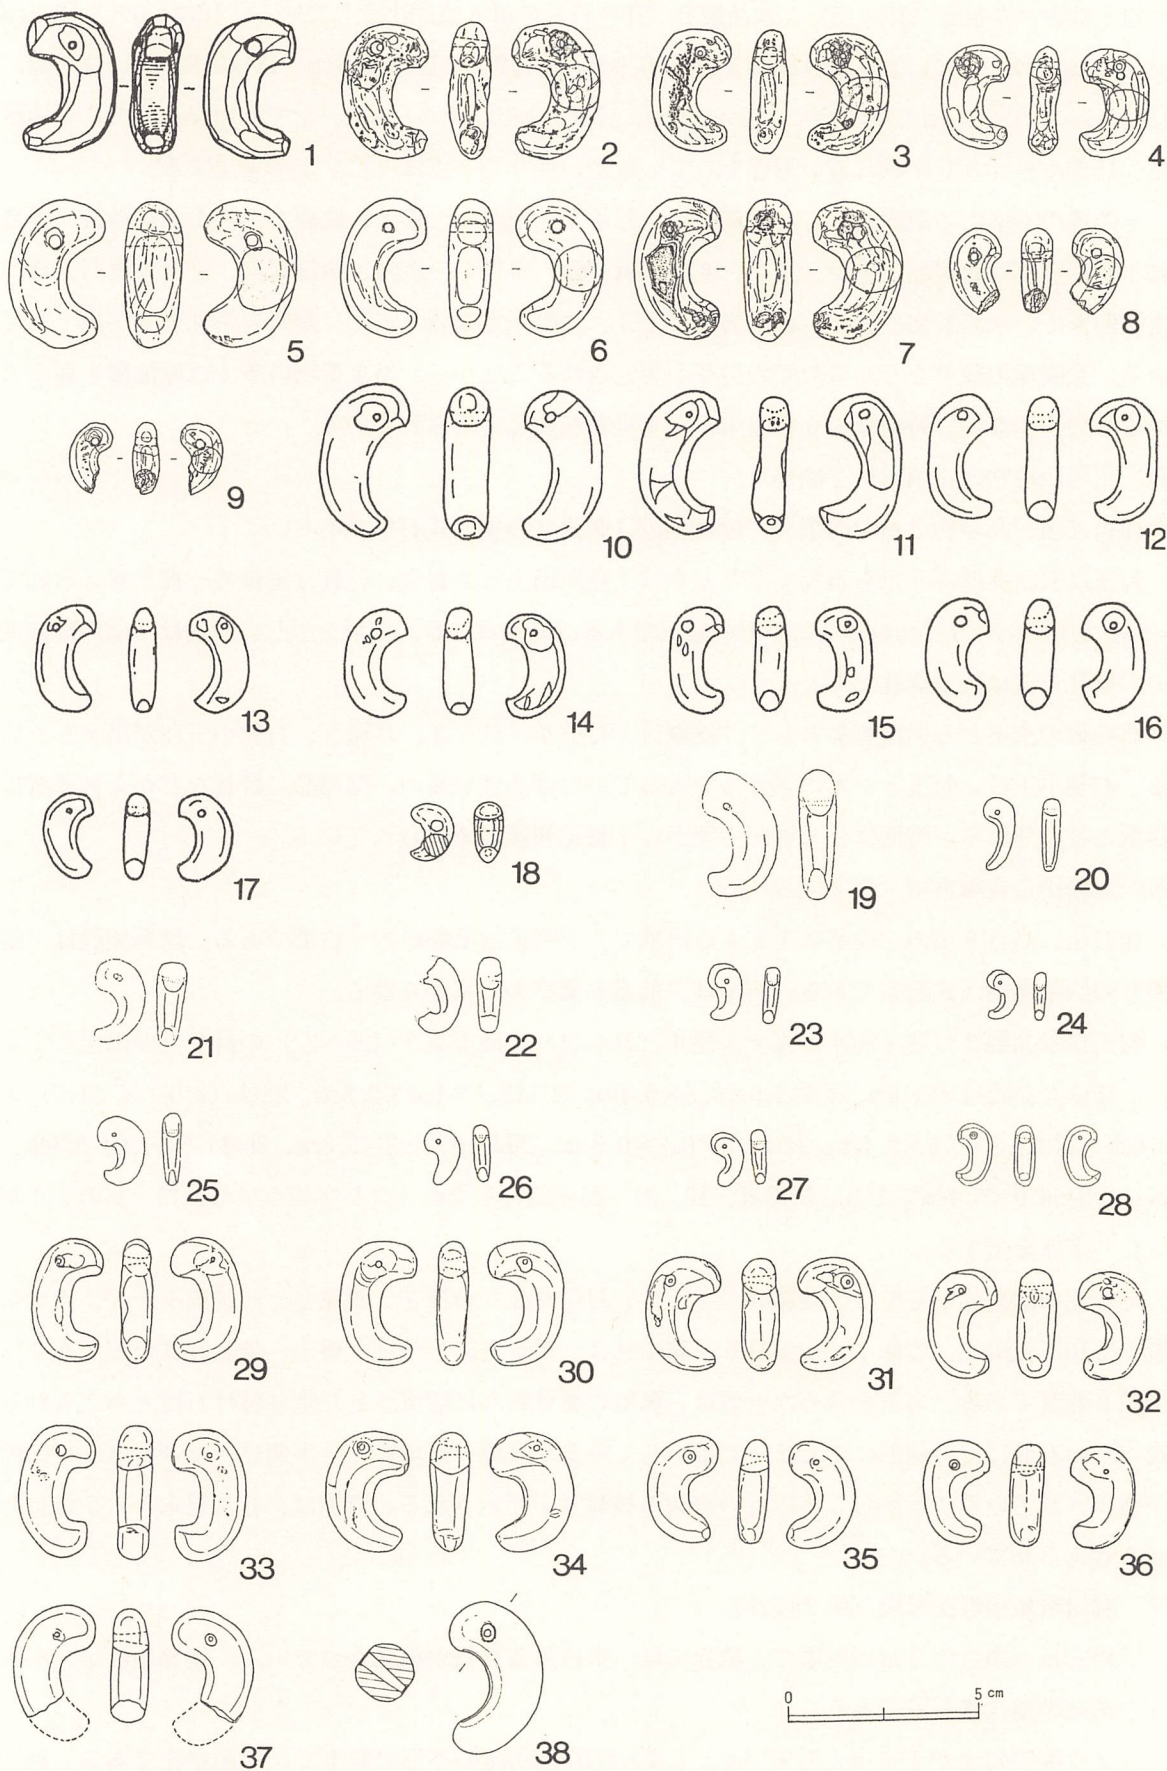 1 2 3 4
5 6 7 8
9 10 11 12
13 14 15 16
17 18 19 20
21 22 23 24
25 26 27 28
29 30 31 32
33 34 35 36
37 38 0 5 cm